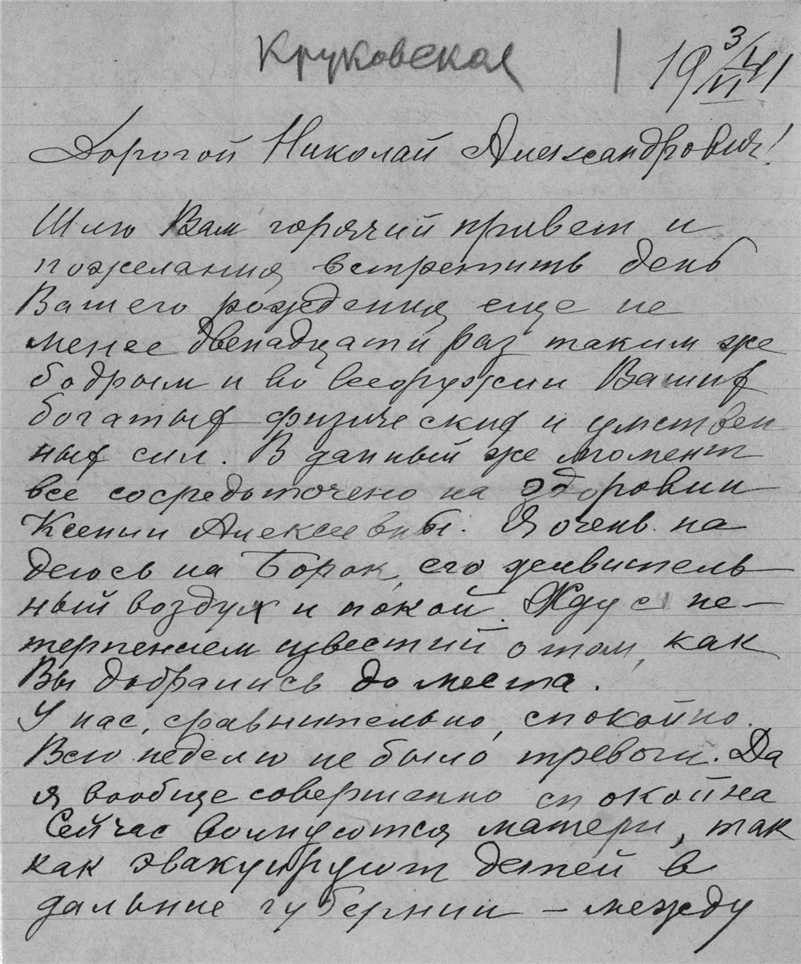 Круковская
19 3/VI 41
Дорогой Николай Александрович!
Шлю Вам горячий привет и
пожелания встретить день
Вашего рождения еще не
менее двенадцати раз таким же
бодрым и во всеоружии Ваших
богатых физических и умствен
ных сил. В данный же момент
все сосредоточено на здоровии
Ксении Алексеевны. Я очень на
деюсь на Борок, его целительный
ный воздух и покой. Жду с не-
терпением известий о том, как
Вы добрались до места.
У нас, сравнительно, спокойно.
Всю неделю не было тревоги. Да
я вообще совершенно спокойна
Сейчас волнуются матери, так
как эвакуируют детей в
дальние губернии – между